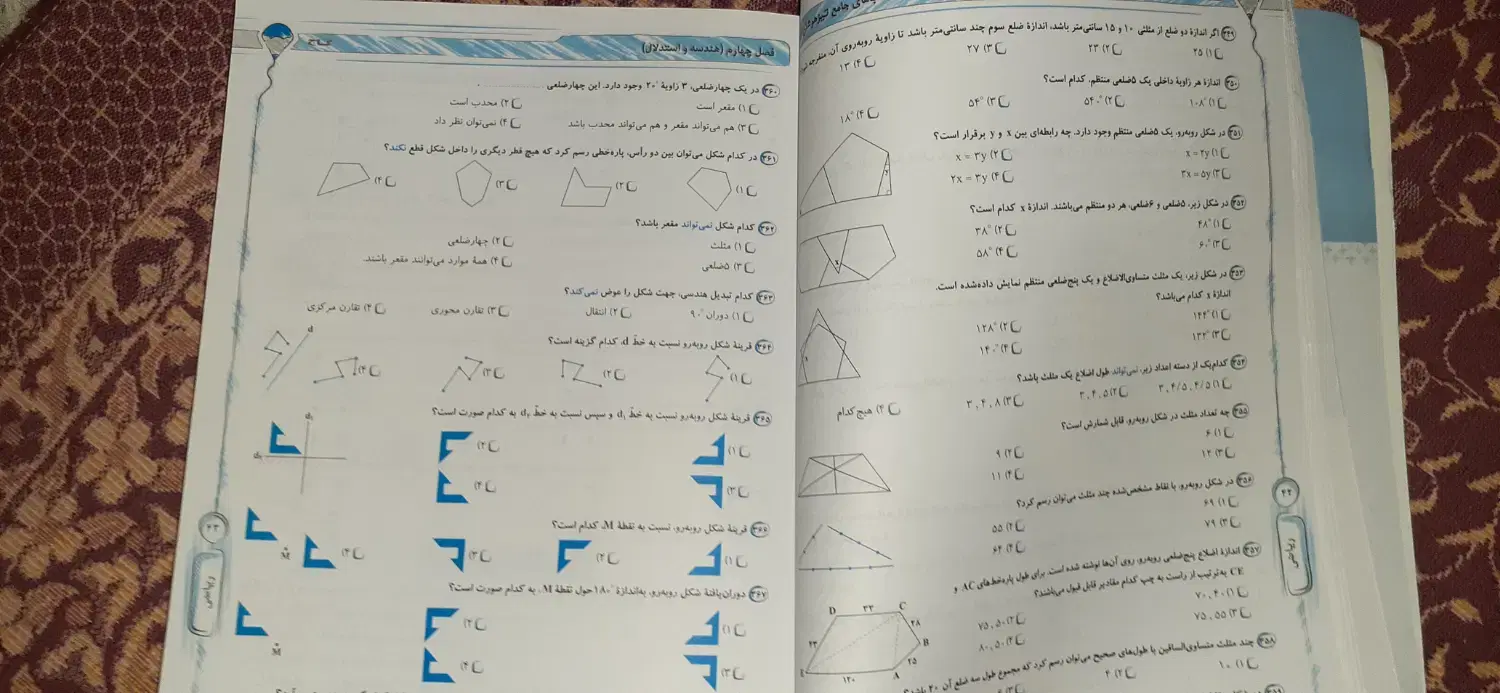 های جامع تیزهوشان
۳۴۹ اگر اندازهٔ دو ضلع از مثلثی ۱۰ و ۱۵ سانتی‌متر باشد، اندازهٔ ضلع سوم چند سانتی‌متر باشد تا زاویهٔ روبه‌روی آن، منفرجه
۱) ۲۵ ۲) ۲۳ ۳) ۲۷ ۴) ۱۳
۳۵۰ اندازهٔ هر زاویهٔ داخلی یک ۵ضلعی منتظم، کدام است؟
۱) ۱۰۸° ۲) ۵۴۰° ۳) ۵۴° ۴) ۱۸°
۳۵۱ در شکل روبه‌رو، یک ۵ضلعی منتظم وجود دارد. چه رابطه‌ای بین x و y برقرار است؟
۱) x = ۲y ۲) x = ۳y
۳) ۳x = ۵y ۴) ۲x = ۳y
۳۵۲ در شکل زیر، ۵ضلعی و ۶ضلعی، هر دو منتظم می‌باشند. اندازهٔ x کدام است؟
۱) ۴۸° ۲) ۳۸°
۳) ۶۰° ۴) ۵۸°
x
۳۵۳ در شکل زیر، یک مثلث متساوی‌الاضلاع و یک پنج‌ضلعی منتظم نمایش داده‌شده است.
اندازهٔ x کدام می‌باشد؟
۱) ۱۴۴° ۲) ۱۲۸°
۳) ۱۳۲° ۴) ۱۴۰°
۳۵۴ کدام‌یک از دسته اعداد زیر، نمی‌تواند طول اضلاع یک مثلث باشد؟
۱) ۳ , ۴/۵ , ۴/۵ ۲) ۳ , ۴ , ۵ ۳) ۳ , ۴ , ۸ ۴) هیچ کدام
۳۵۵ چه تعداد مثلث در شکل روبه‌رو، قابل شمارش است؟
۱) ۶ ۲) ۹
۳) ۱۲ ۴) ۱۱
۳۵۶ در شکل روبه‌رو، با نقاط مشخص‌شده چند مثلث می‌توان رسم کرد؟
۱) ۶۹ ۲) ۵۵
۳) ۷۹ ۴) ۶۴
۳۵۷ اندازهٔ اضلاع پنج‌ضلعی روبه‌رو، روی آن‌ها نوشته شده است. برای طول پاره‌خط‌های AC و
CE به‌ترتیب از راست به چپ کدام مقادیر قابل قبول می‌باشند؟
۱) ۷۰ , ۴۰ ۲) ۷۵ , ۵۰
۳) ۷۵ , ۵۵ ۴) ۸۰ , ۵۰
D ۳۳ C
۲۸
۲۳
B
۲۵
E ۱۲۰ A
۳۵۸ چند مثلث متساوی‌الساقین با طول‌های صحیح می‌توان رسم کرد که مجموع طول سه ضلع آن ۲۰ باشد؟
۱) ۱۰ ۲) ۴
۴۲
ریاضی
فصل چهارم (هندسه و استدلال)
۳۶۰ در یک چهارضلعی، ۳ زاویهٔ ۲۰° وجود دارد. این چهارضلعی ..........
۱) مقعر است ۲) محدب است
۳) هم می‌تواند مقعر و هم می‌تواند محدب باشد ۴) نمی‌توان نظر داد
۳۶۱ در کدام شکل می‌توان بین دو رأس، پاره‌خطی رسم کرد که هیچ قطر دیگری را داخل شکل قطع نکند؟
۱) ۲) ۳) ۴)
۳۶۲ کدام شکل نمی‌تواند مقعر باشد؟
۱) مثلث ۲) چهارضلعی
۳) ۵ضلعی ۴) همهٔ موارد می‌توانند مقعر باشند.
۳۶۳ کدام تبدیل هندسی، جهت شکل را عوض نمی‌کند؟
۱) دوران ۹۰° ۲) انتقال ۳) تقارن محوری ۴) تقارن مرکزی
۳۶۴ قرینهٔ شکل روبه‌رو نسبت به خط d، کدام گزینه است؟
d
۱) ۲) ۳) ۴)
۳۶۵ قرینهٔ شکل روبه‌رو نسبت به خطّ d₁ و سپس نسبت به خطّ d₂ به کدام صورت است؟
d₁
d₂
۱) ۲)
۳) ۴)
۳۶۶ قرینهٔ شکل روبه‌رو، نسبت به نقطهٔ M، کدام است؟
M
۱) ۲) ۳) ۴)
۳۶۷ دوران‌یافتهٔ شکل روبه‌رو، به‌اندازهٔ ۱۸۰° حول نقطهٔ M، به کدام صورت است؟
M
۱) ۲)
۳) ۴)
۴۳
ریاضی